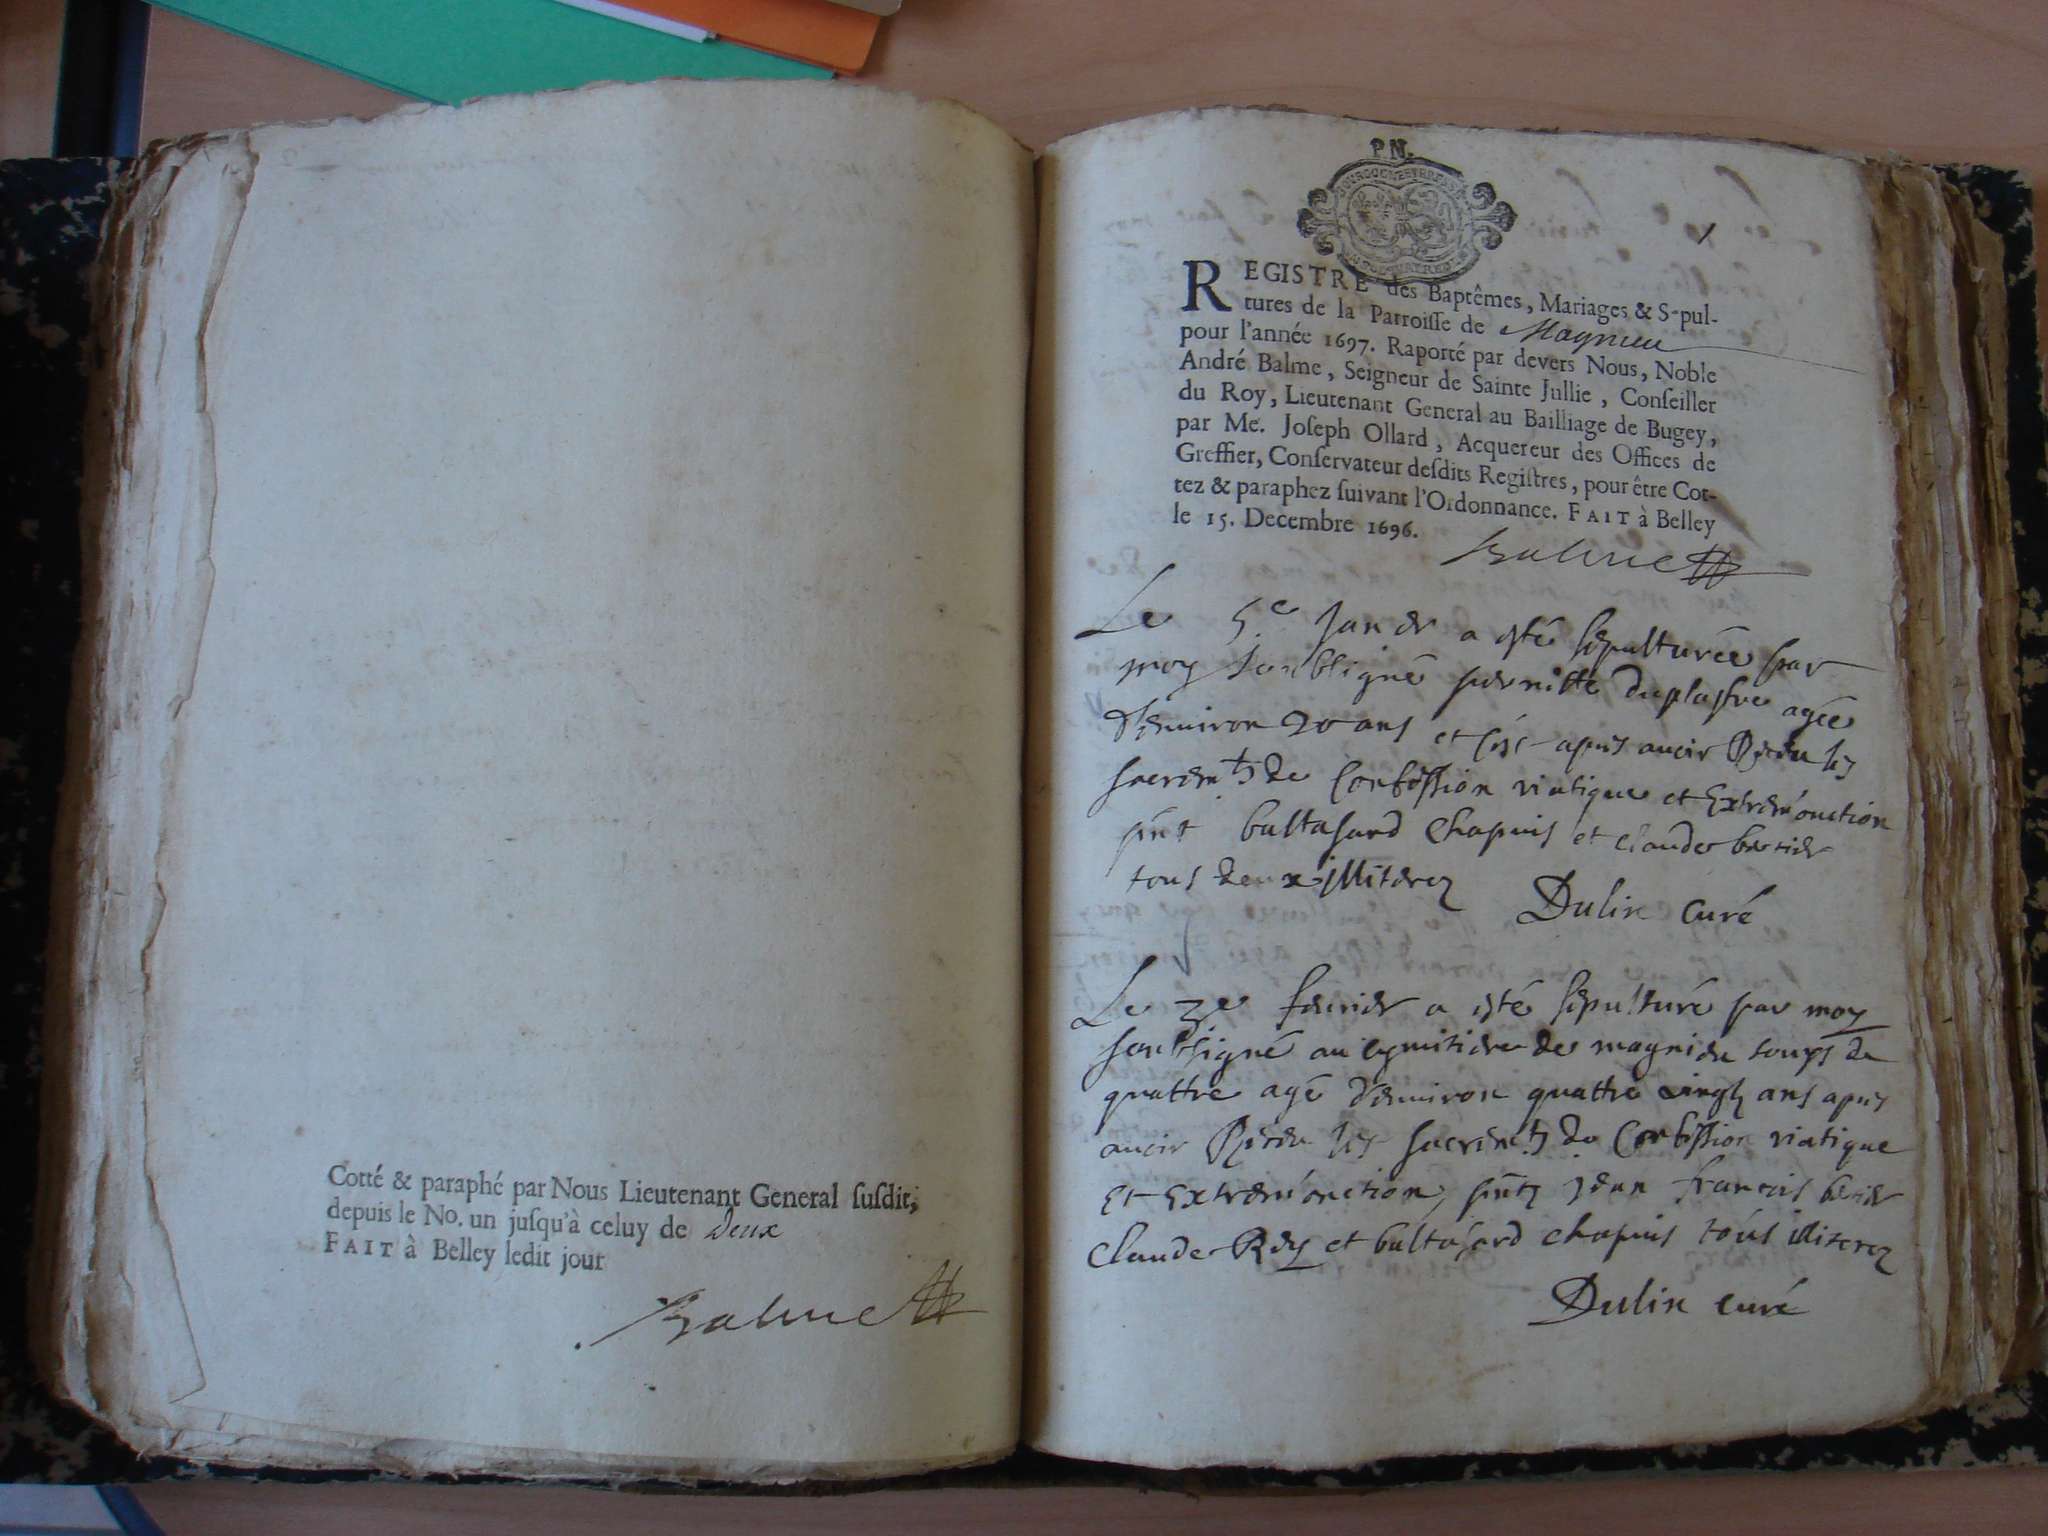 Cotté & paraphé par Nous Lieutenant General susdit,
depuis le No. un jusqu'à celuy de Deux
FAIT à Belley ledit jour
Balme
PN.
1
REGISTRE des Baptêmes, Mariages & Sepul-
tures de la Parroisse de Magnieu
pour l'année 1697. Raporté par devers Nous, Noble
André Balme, Seigneur de Sainte Jullie, Conseiller
du Roy, Lieutenant General au Bailliage de Bugey,
par Me. Joseph Ollard, Acquereur des Offices de
Greffier, Conservateur desdits Registres, pour être Cot-
tez & paraphez suivant l'Ordonnance. FAIT à Belley
le 15. Decembre 1696.
Balme
Le 5e Janvier a esté sepulturée par
moy soubsigné pernette duplastre agée
d'environ 20 ans et apres avoir Receu les
sacremts de Confession viatique et Extremonction
pnt baltasard Chapuis et Claude bercier
tous deux illiterez
Dulin curé
Le 3e fevrier a esté sepulturé par moy
soubsigné au cymitiere de magnieu
quattre agé d'environ quattre vingts ans apres
avoir Receu les sacremts de Confession viatique
Et Extremonction, pnts Jean francois bercier
Claude Rey et baltasard chapuis tous illiterez
Dulin curé